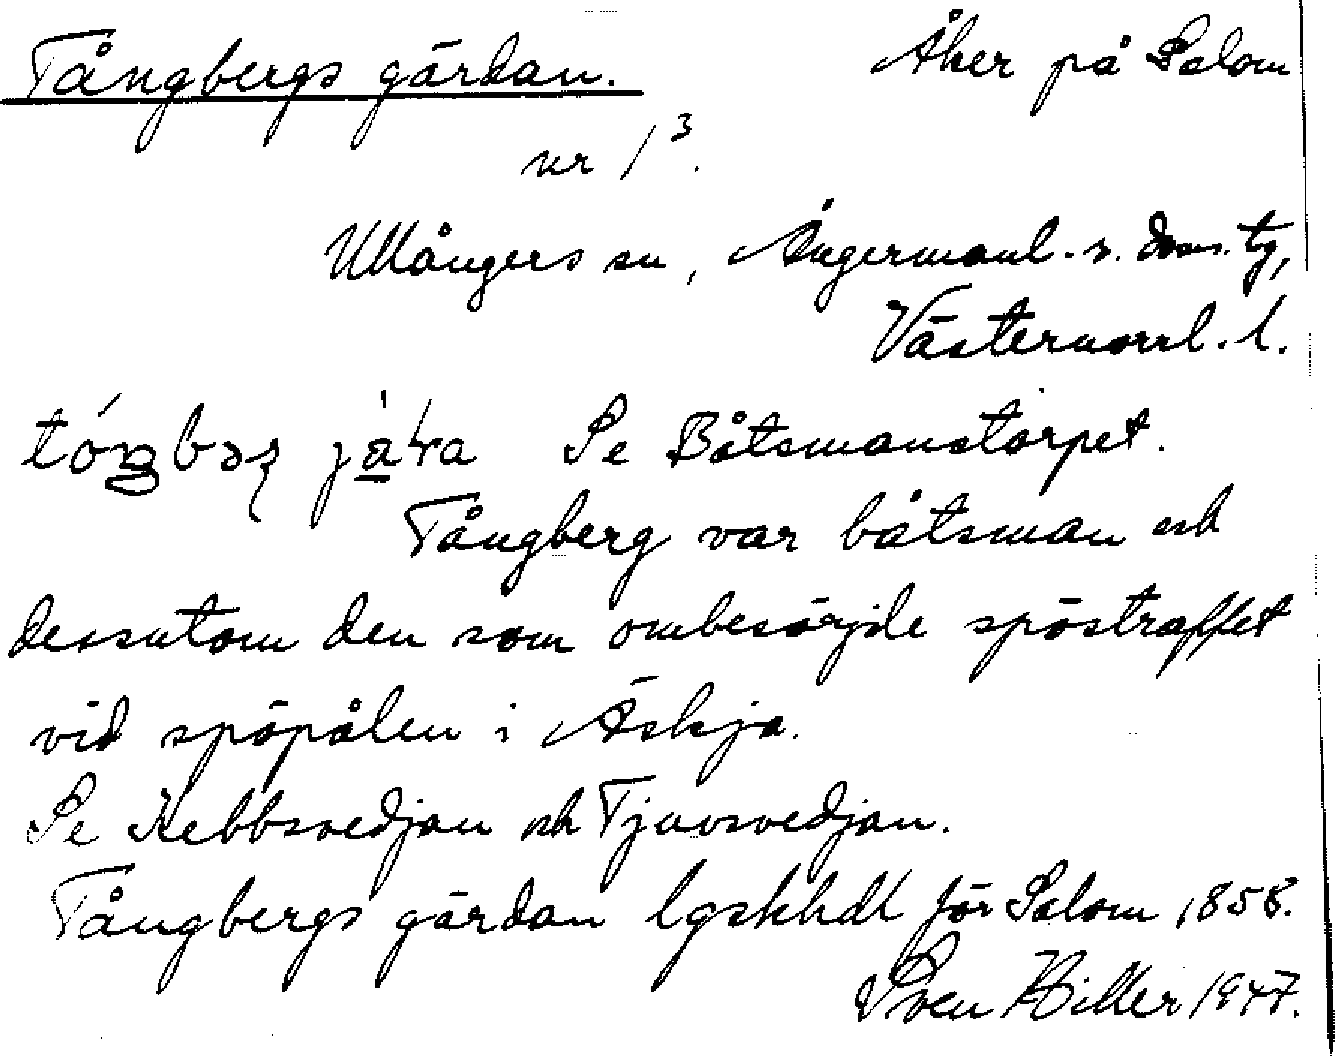 Tångbergs gärdan. Åker på Salom
nr 1³.
Ullångers sn, Ångermanl. s. doms. tg,
Västernorrl. l.
Se Båtsmanstorpet.
Tångberg var båtsman och
dessutom den som ombesörjde spöstraffet
vid spöpålen i Äskja.
Se Kebbsvedjan och Tjuvsvedjan.
Tångbergs gärdan lgskhdl för Salom 1858.
Sven Hiller 1947.